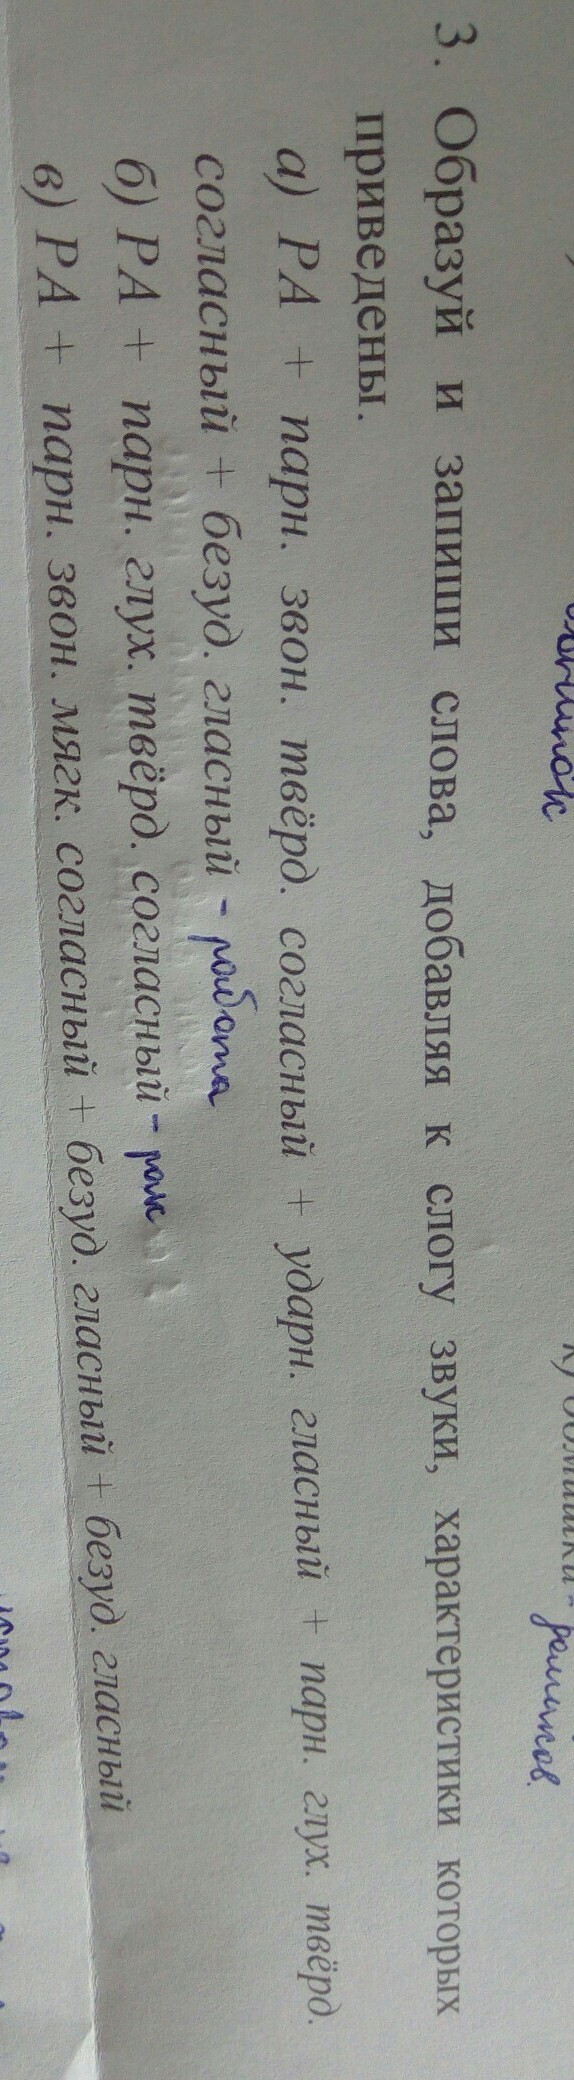 лопиток
к) домашки - домиков
3. Образуй и запиши слова, добавляя к слогу звуки, характеристики которых
приведены.
а) РА + парн. звон. твёрд. согласный + ударн. гласный + парн. глух. твёрд.
согласный + безуд. гласный - работа
б) РА + парн. глух. твёрд. согласный - рак
в) РА + парн. звон. мягк. согласный + безуд. гласный + безуд. гласный